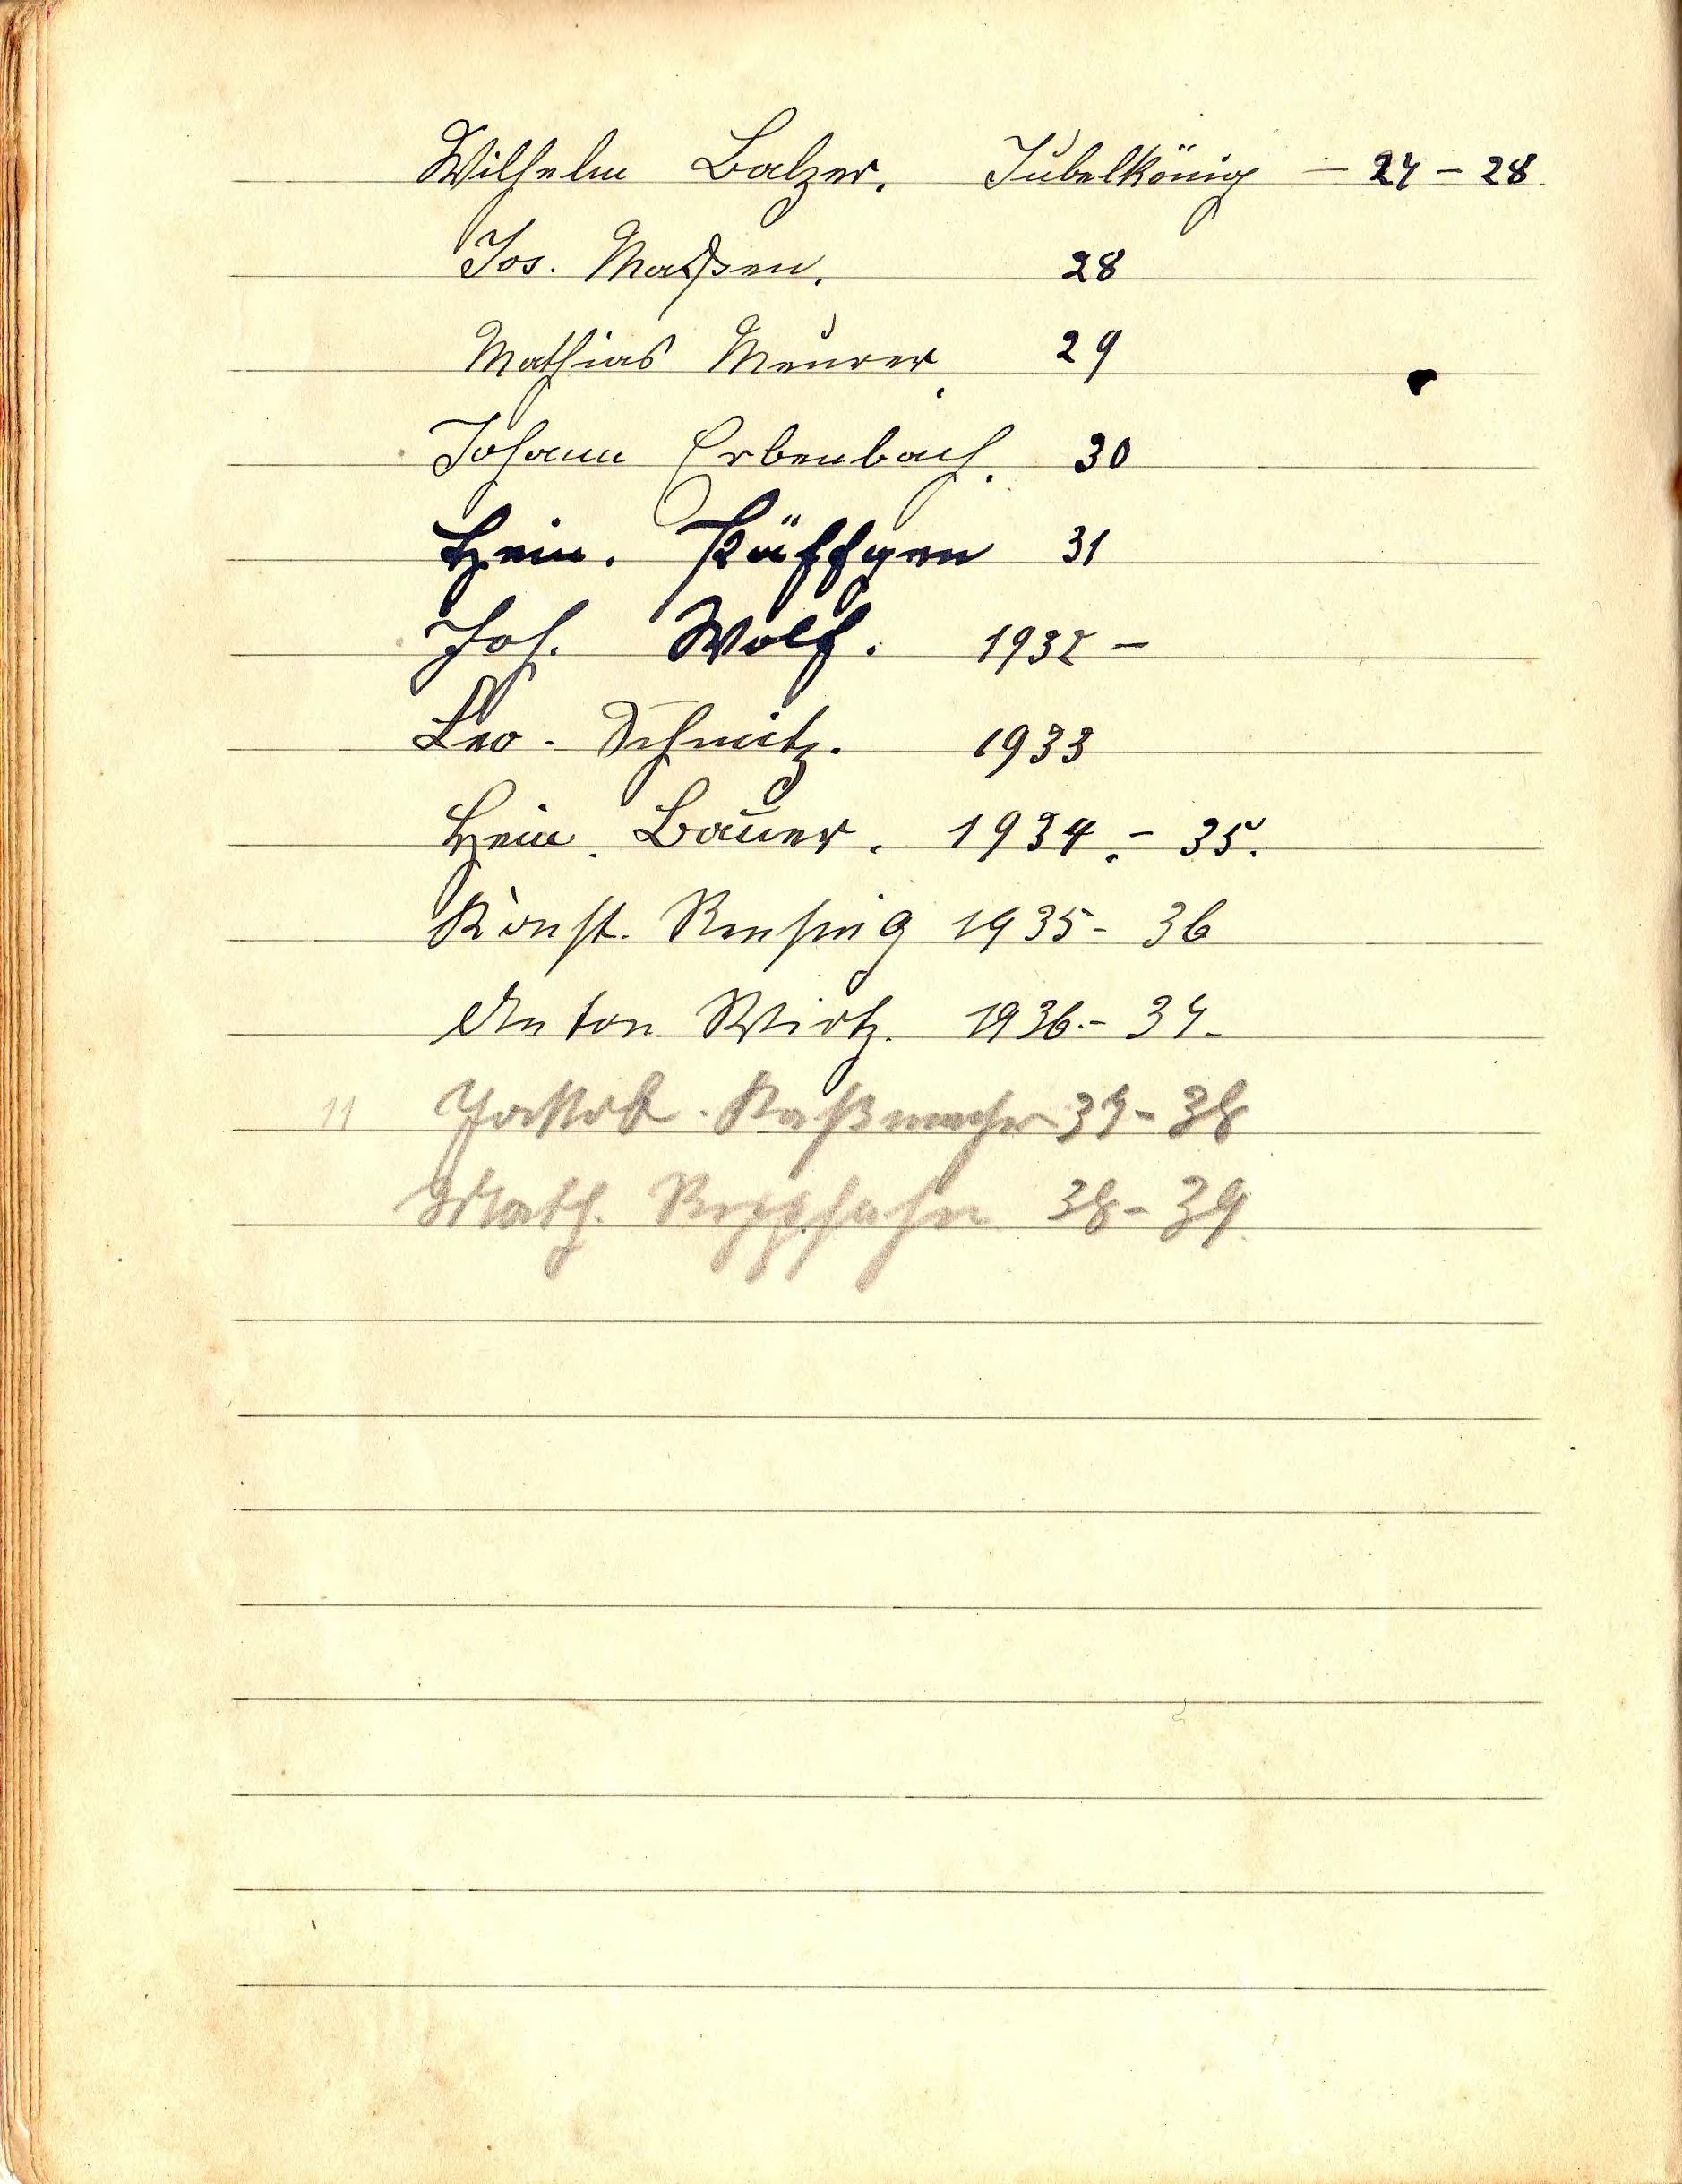 Wilhelm Balzer. Jubelkönig – 27 – 28.
Jos. Maßen. 28
Mathias Meurer. 29
Johann Erbenbach. 30
Hein. Käffgen 31
Joh. Wolf. 1932 –
Leo. Schmitz. 1933
Hein. Bauer. 1934. – 35.
Konst. Rensing 1935 - 36
Anton Wirtz. 1936. - 37.
11 Jakob. 37 - 38
Math. Repphahn 38 - 39.